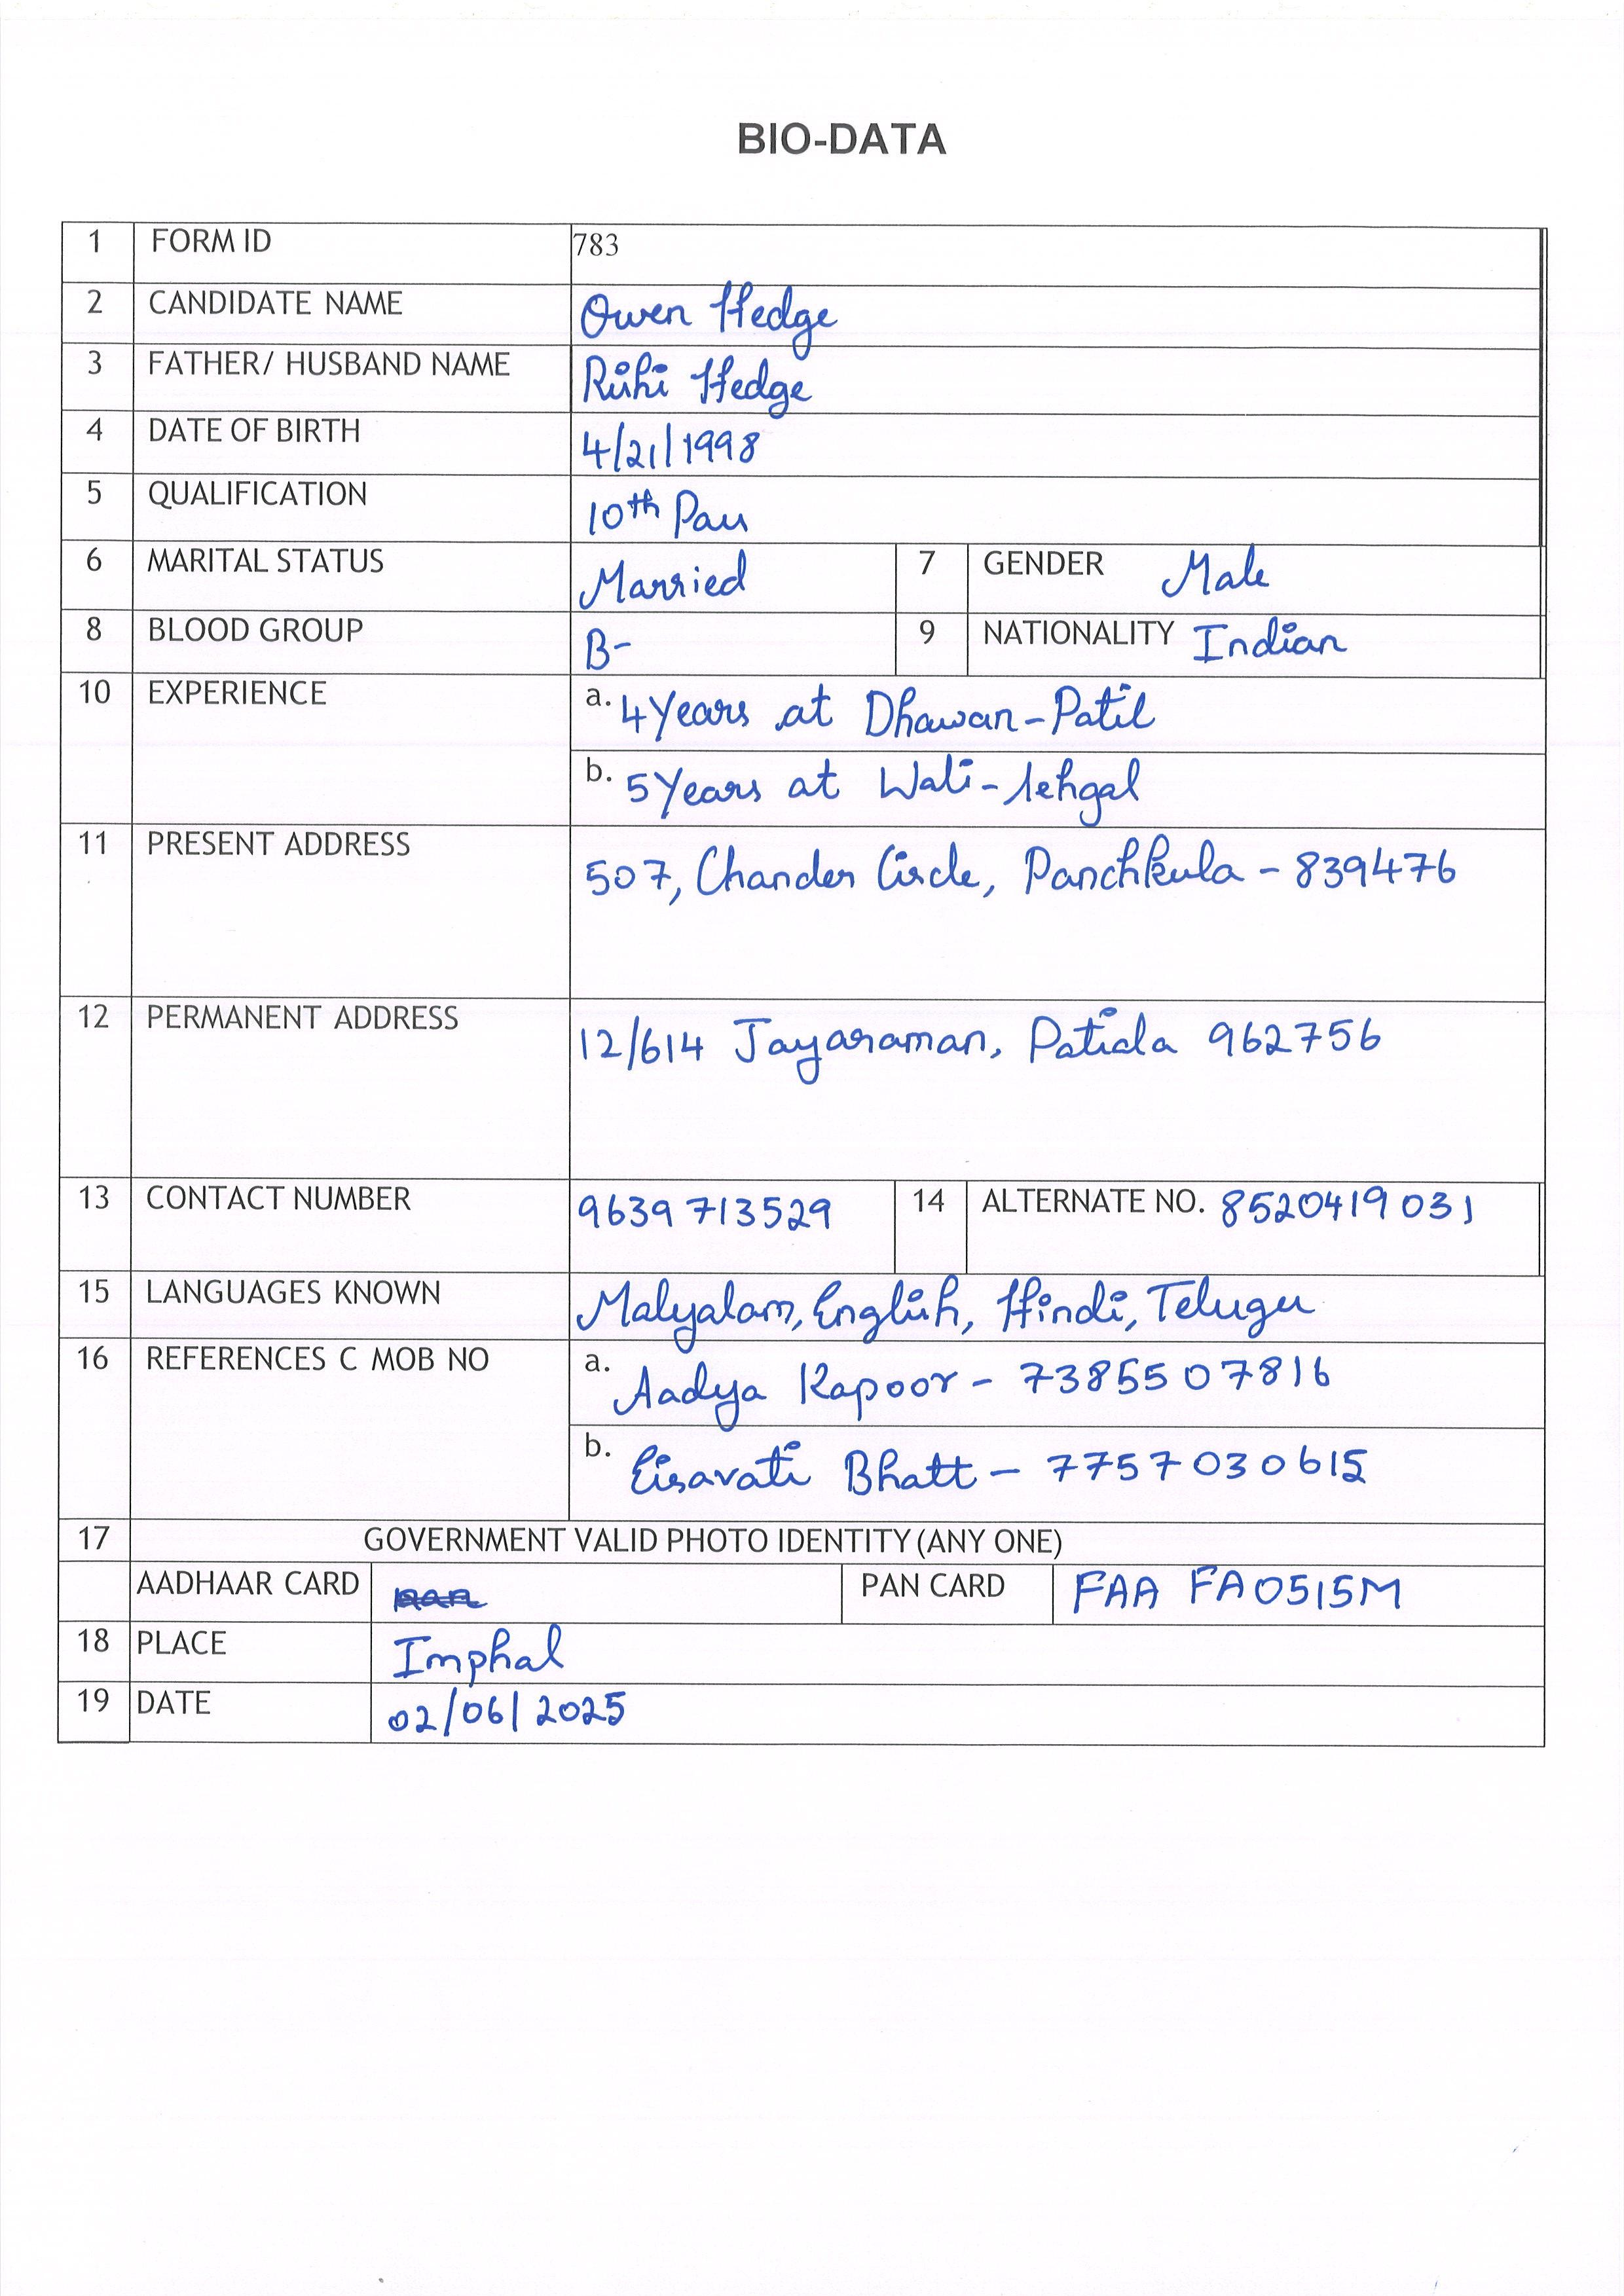 BIO-DATA
1 FORM ID 783
2 CANDIDATE NAME Owen Hedge
3 FATHER/ HUSBAND NAME Rishi Hedge
4 DATE OF BIRTH 4/21/1998
5 QUALIFICATION 10th Pass
6 MARITAL STATUS Married 7 GENDER Male
8 BLOOD GROUP B- 9 NATIONALITY Indian
10 EXPERIENCE a. 4 Years at Dhawan-Patil
b. 5 Years at Wali-Sehgal
11 PRESENT ADDRESS 507, Chander Circle, Panchkula - 839476
12 PERMANENT ADDRESS 12/614 Jayaraman, Patiala 962756
13 CONTACT NUMBER 9639713529 14 ALTERNATE NO. 8520419031
15 LANGUAGES KNOWN Malyalam, English, Hindi, Telugu
16 REFERENCES C MOB NO a. Aadya Kapoor - 7385507816
b. Eisavati Bhatt - 7757030615
17 GOVERNMENT VALID PHOTO IDENTITY (ANY ONE)
AADHAAR CARD PAN CARD FAAFA0515M
18 PLACE Imphal
19 DATE 02/06/2025